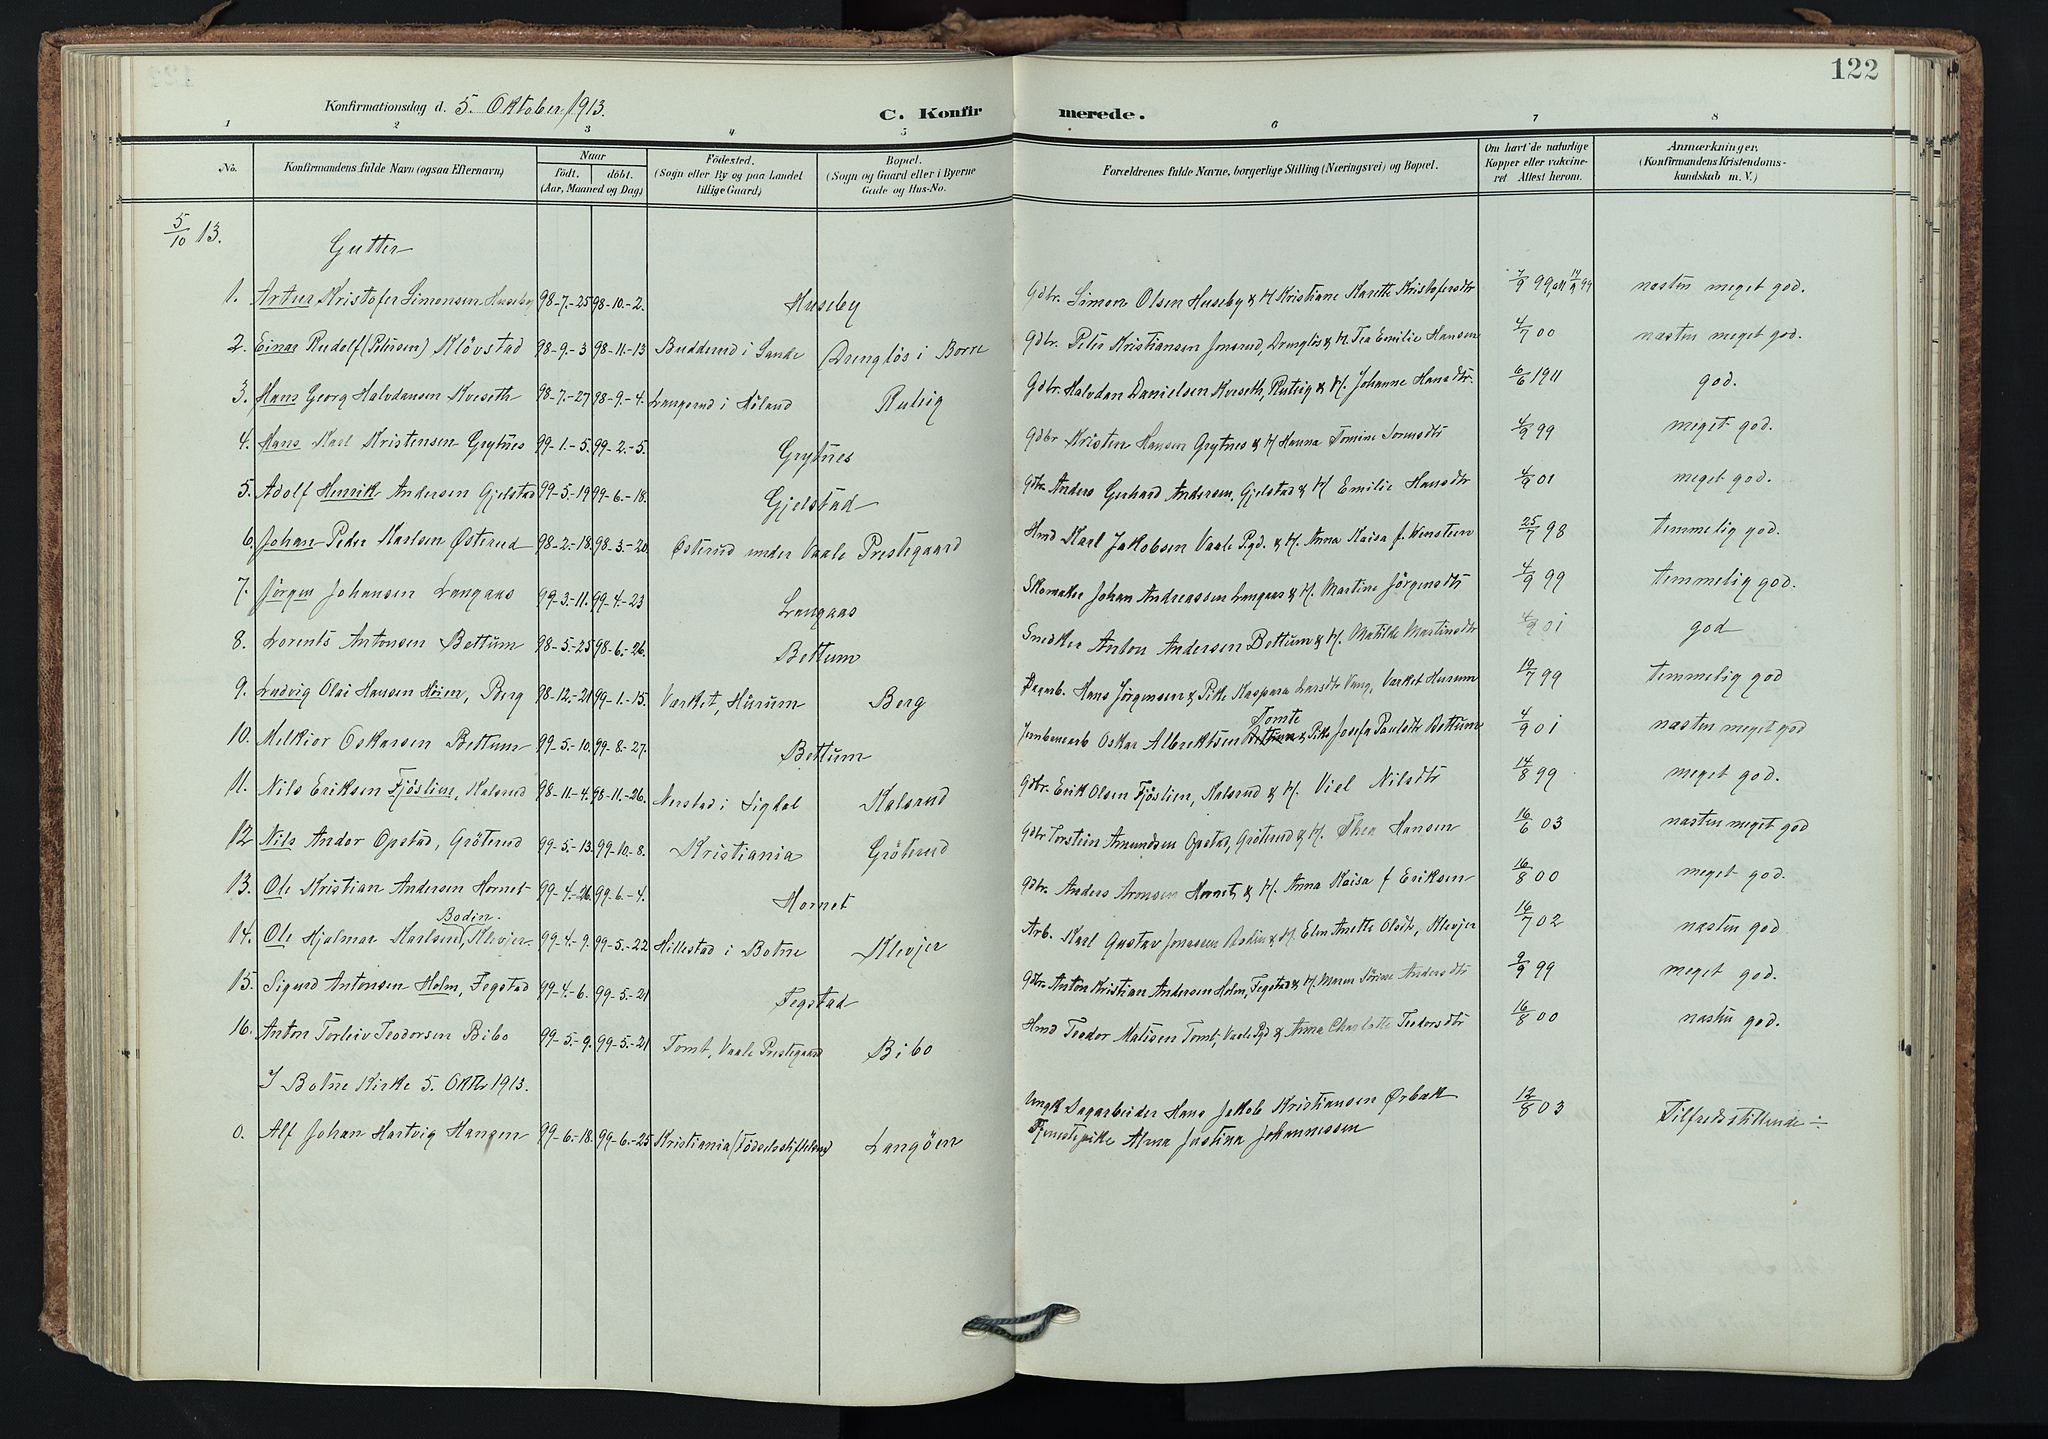 122
Konfirmationsdag d. 5. Oktober 1913.
C. Konfirmerede.
1 2 3 4 5 6 7 8
No.
Konfirmandens fulde Navn (ogsaa Efternavn)
Naar
født. døbt.
(Aar, Maaned og Dag)
Födested.
(Sogn eller By og paa Landet
tillige Gaard)
Bopæl.
(Sogn og Gaard eller i Byerne
Gade og Hus-No.
Forældrenes fulde Navne, borgerlige Stilling (Næringsvei) og Bopæl.
Om havt de naturlige
Kopper eller vakcine-
ret Attest herom.
Anmærkninger.
(Konfirmandens Kristendoms-
kundskab m. V.)
5/10 13.
Gutter
1. Artur Kristofer Simonsen Huseby 98-7-25 98-10-2. Huseby Gdbr. Simon Olsen Huseby & H. Kristiane Marette Kristofersdtr 99, 99 næsten meget god.
2. Einar Rudolf (Petersen) Klövstad 98-9-3 98-11-13 Budderud i Sande Drenglös i Borre Gdbr. Peter Kristiansen Drenglös & H. Tea Emilie Hansen 4/7 00 næsten meget god.
3. Hans Georg Halvdansen Kveseth 98-7-27 98-9-4. Langerud i Höland Rutvig Gdbr. Halvdan Danielsen Kveseth, Rutvig & H. Johanne Hansdtr. 6/6 1911 god.
4. Hans Karl Kristensen Grytnes 99-1-5. 99-2-5. Grytnes Gdbr Kristen Hansen Grytnes & H Hanna Tomine 4/9 99 meget god.
5. Adolf Henrik Andersen Gjelstad 99-5-19 99-6-18. Gjelstad Gdbr. Anders Gerhard Andersen, Gjelstad & H. Emilie Hansdtr 4/9 01 meget god.
6. Johan Peder Karlsen Østerud 98-2-18. 98-3-20. Østerud under Vaale Prestegaard Hmd Karl Jakobsen Vaale Pgd. & H. Anna Kaisa f. 25/7 98 temmelig god.
7. Jørgen Johansen Langaas 99-3-11. 99-4-23 Langaas Skomaker Johan Andreassen Langaas & H. Martine Jörgensdtr 4/9 99 temmelig god.
8. Lorents Antonsen Bettum 98-5-25 98-6-26. Bettum Snedker Anton Andersen Bettum & H. Matilde Martinsdtr 4/9 01 god
9. Ludvig Olai Hansen Höien, Berg 98-12-21 99-1-15. Værket, Hurum Berg Dagarb. Hans Jörgensen & Pike Kaspara Larsdtr Vang, Værket Hurum 19/7 99 temmelig god
Tomte
10. Melkior Oskarsen Bettum 99-5-10. 99-8-27. Bettum Jernbanearb Oskar Albrektsen & Pike Josefa Paulsdtr Bettum 4/9 01 næsten meget god
11. Nils Eriksen Fjöslien, Kalsrud 98-11-4. 98-11-26. Nerstad i Sigdal Kalsrud Gdbr. Erik Olsen Fjöslien, Kalsrud & H. Viel Nilsdtr 14/8 99 meget god.
12 Nils Andor Opstad, Gröterud 99-5-13. 99-10-8. Kristiania Gröterud Gdbr Torstein Amundsen Opstad, Gröterud & H. Thea Hansen 16/6 03 næsten meget god
13. Ole Kristian Andersen Hornet 99-4-26. 99-6-4. Hornet Gdbr. Anders Aronsen Hornet, & H. Anna Kaisa f Eriksen 16/8 00 meget god.
Bodin.
14. Ole Hjalmar Karlsen, Klevjer 99-4-9. 99-5-22 Hillestad i Botne Klevjer Arb. Karl Gustav Jonassen Bodin & H. Elen Anette Olsdtr, Klevjer 16/7 02 næsten god
15. Sigurd Antonsen Holm, Fegstad 99-4-6. 99-5-21 Fegstad Gdbr. Anton Kristian Andersen Holm, Fegstad & H. Maren Sörine Andersdtr 9/9 99 meget god.
16. Anton Torleiv Teodorsen Bibo 99-5-9. 99-5-21 Tomt, Vaale Prestegaard Bibo Hmd Teodor Matisen Tomt, Vaale Pgd & Anna Charlotte Teodorsdtr 16/8 00 næsten god.
I Botne Kirke 5. Oktbr 1913.
0. Alf Johan Hartvig Hansen 99-6-18. 99-6-25 Kristiania (Födselsstiftelsen) Langöen Ungk Dagarbeider Hans Jakob Kristiansen Ørbæk 12/8 03 Tilfredsstillende ÷
Tjenestepike Alma Justina Johannessen